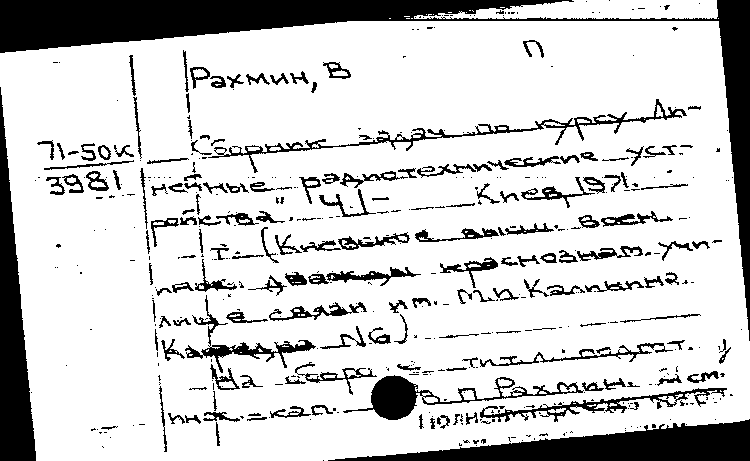 П
Рахмин, В
71-50к
3981
Сборник задач по курсу „Ли-
нейные радиотехнические уст-
ройства". Ч.1- Киев, 1971.
- т. (Киевское высш. воен.
инж. дважды краснознам. учи-
лище связи им. М.И. Калинина.
Кафедра №6).
На обороте тит. л.: подгот.
инж.-кап. В.П. Рахмин. см.
полн.